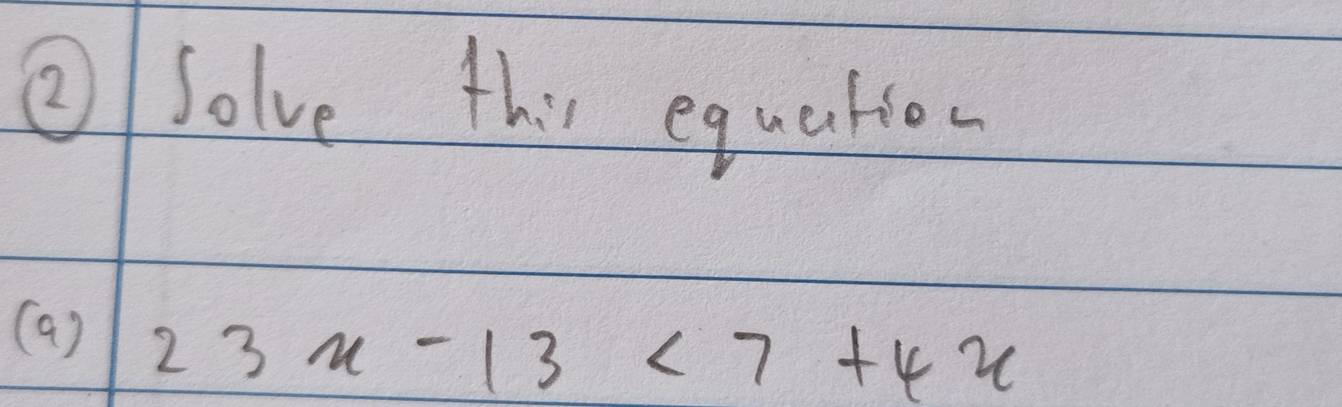 ② Solve this equation
(a) 23x - 13 < 7 + 4x